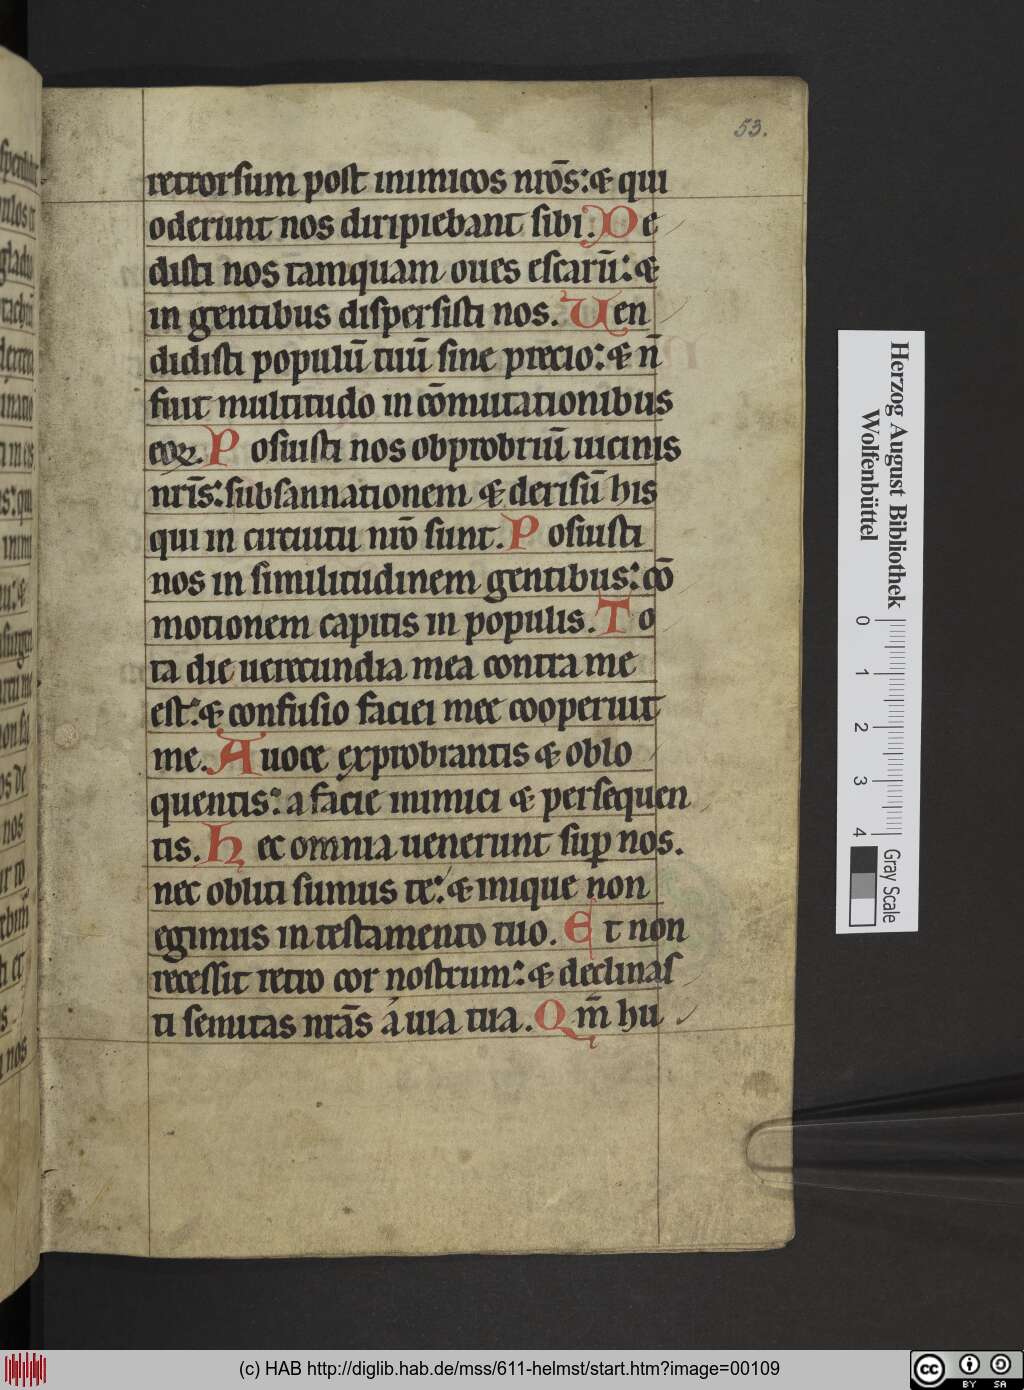 53.
retrorsum post inimicos nr̄os: & qui
oderunt nos diripiebant sibi. De
disti nos tamquam oues escarū: &
in gentibus dispersisti nos. Uen
didisti populū tuū sine precio: & n̄
fuit multitudo in cōmutationibus
eoꝝ. Posuisti nos obprobriū uicinis
nrīs: subsannationem & derisū his
qui in circuitu nr̄o sunt. Posuisti
nos in similitudinem gentibus: cō
motionem capitis in populis. To
ta die uerecundia mea contra me
est: & confusio faciei mee cooperuit
me. A uoce exprobrantis & oblo
quentis: a facie inimici & persequen
tis. Hec omnia uenerunt suꝑ nos.
nec obliti sumus te: & inique non
egimus in testamento tuo. Et non
recessit retro cor nostrum: & declinas
ti semitas nrās á uia tua. Qm̄ hu
Herzog August Bibliothek
Wolfenbüttel
0 1 2 3 4
Gray Scale
(c) HAB http://diglib.hab.de/mss/611-helmst/start.htm?image=00109
cc BY SA